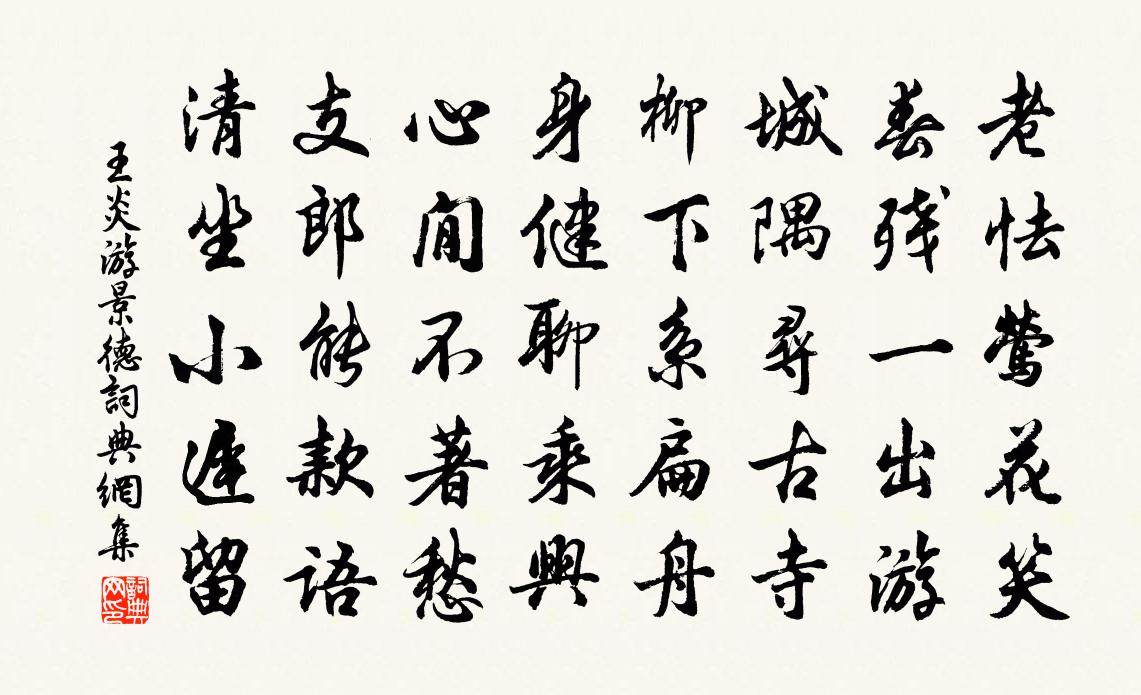 老怯莺花笑
春残一出游
城隅尋古寺
柳下系扁舟
身健聊乘興
心閒不著愁
支郎能款語
清坐小遲留
王炎游景德詞典網集
詞典網印